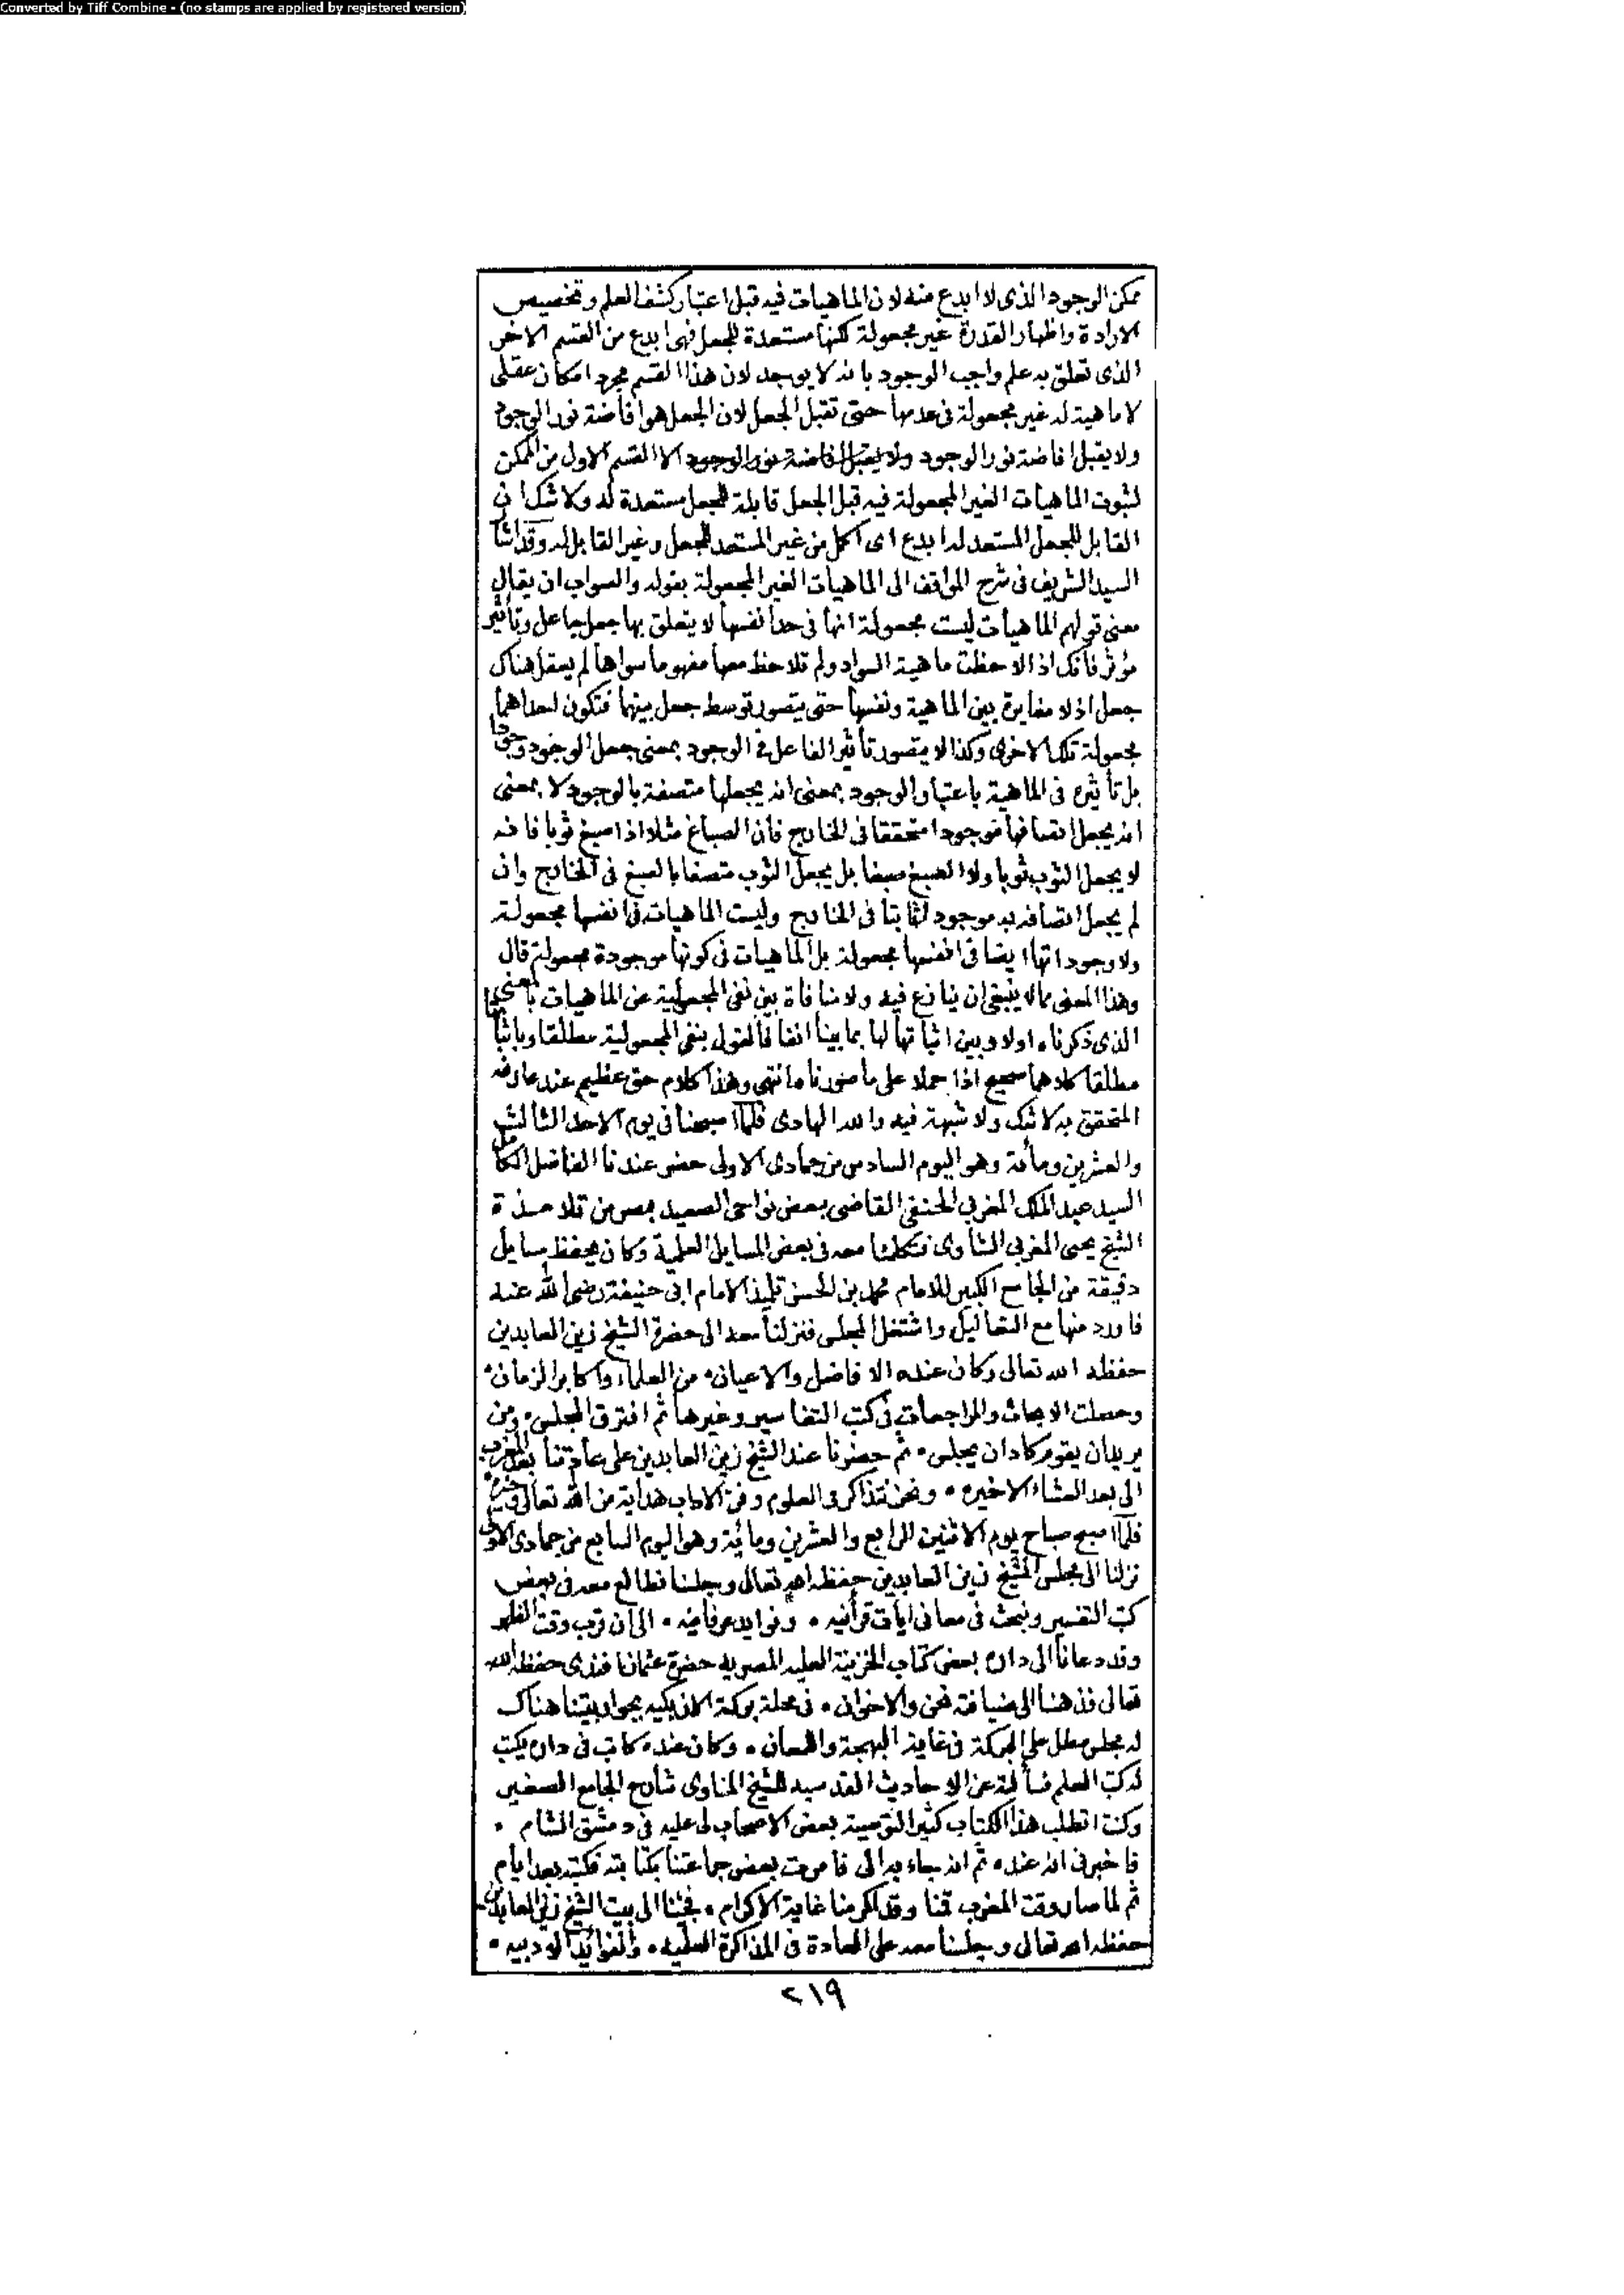 Converted by Tiff Combine - (no stamps are applied by registered version)
ممكن الوجود الذى لا ابدع منه لان الماهيات فيه قبل اعتبار كشف العلم وتخصيص
الارادة واظهار القدرة غير مجعولة لكنها مستعدة للجعل فهى ابدع من القسم الاخر
الذى تعلق به علم واجب الوجود بانه لا يوجد لان هذا القسم مجرد امكان عقلى
لا ماهية له غير مجعولة فى عدمها حتى تقبل الجعل لان الجعل هو افاضة نور الوجود
ولا يقبل افاضة نور الوجود ولا يقبل افاضة نور الوجود الا القسم الاول من الممكن
لثبوت الماهيات الغير المجعولة فيه قبل الجعل قابلة للجعل مستعدة له ولا شك ان
القابل للجعل المستعد له ابدع اى اكمل من غير المستعد للجعل وغير القابل له وقد اشا
السيد الشريف فى شرح المواقف الى الماهيات الغير المجعولة بقوله والصواب ان يقال
معنى قولهم الماهيات ليست مجعولة انها فى حد انفسها لا يتعلق بها جعل جاعل وتأثير
مؤثر فانك اذا لاحظت ماهية السواد ولم تلاحظ معها مفهوما سواها لم يعقل هناك
جعل اذ لا مغايرة بين الماهية ونفسها حتى يتصور توسط جعل بينهما فتكون احداهما
مجعولة تلك الاخرى وكذا لا يتصور تأثير الفاعل فى الوجود بمعنى جعل الوجود وجودا
بل تأثيره فى الماهية باعتبار الوجود بمعنى انه يجعلها متصفة بالوجود لا بمعنى
انه يجعل اتصافها موجودا متحققا فى الخارج فان الصباغ مثلا اذا صبغ ثوبا فانه
لا يجعل الثوب ثوبا ولا الصبغ صبغا بل يجعل الثوب متصفا بالصبغ فى الخارج وان
لم يجعل اتصافه به موجودا ثابتا فى الخارج وليست الماهيات فى انفسها مجعولة
ولا وجوداتها ايضا فى انفسها مجعولة بل الماهيات فى كونها موجودة مجعولة قال
وهذا المعنى مما لا ينبغى ان ينازع فيه ولا منافاة بين نفى المجعولية عن الماهيات بالمعنى
الذى ذكرناه اولا وبين اثباتها لها بما بينا انفا فالقول بنفى المجعولية مطلقا وباثباتها
مطلقا كلاهما صحيح اذا حملا على ما صورناه انتهى وهذا كلام حق عظيم عند عارفه
المتحقق به لا شك ولا شبهة فيه والله الهادى فلما اصبحنا فى يوم الاحد الثالث
والعشرين ومأية وهو اليوم السادس من جمادى الاولى حضر عندنا الفاضل الكامل
السيد عبد الملك المغربى الحنفى القاضى ببعض نواحى الصعيد بمصر من تلامذة
الشيخ يحيى المغربى الشاوى فتكلمنا معه فى بعض المسايل العلمية وكان يحفظ مسايل
دقيقة من الجامع الكبير للامام محمد بن الحسن تلميذ الامام ابى حنيفة رضى الله عنه
فاورد منها مع التعاليل واشتغل المجلس فنزلنا معه الى حضرة الشيخ زين العابدين
حفظه الله تعالى وكان عنده الافاضل والاعيان ۰ من العلماء واكابر الزمان ۰
وحصلت الابحاث والمراجعات فى كتب التفاسير وغيرها ثم افترق المجلس ۰ ومن
يريد ان يقوم كاد ان يجلس ۰ ثم حضرنا عند الشيخ زين العابدين على عادتنا بعد المغرب
الى بعد العشاء الاخيره ۰ ونحن نتذاكر فى العلوم وفن الاداب هداية من الله تعالى
فلما اصبح صباح يوم الاثنين الرابع والعشرين ومائية وهو اليوم السابع من جمادى الاولى
نزلنا الى مجلس الشيخ زين العابدين حفظه الله تعالى وجلسنا نطالع معه فى بعض
كتب التفسير ونبحث فى معانى ايات قرآنيه ۰ وفوايد عرفانيه ۰ الى ان قرب وقت الظهر
وقد دعانا الى داره بعض كتاب الخزينة العليه المصريه حضرة عثمان افندى حفظه الله
تعالى فذهبنا الى ضيافته نحن والاخوان ۰ فى محلة بركة الازبكيه بجوار بيتنا هناك
له مجلس مطل على البركة فى غاية البهجة والحسان ۰ وكان عنده كاتب فى داره يكتب
له كتب العلم فسألته عن الاحاديث القدسيه للشيخ المناوى شارح الجامع الصغير
وكنت اتطلب هذا الكتاب كثيرا لتوصية بعض الاصحاب لى عليه فى دمشق الشام ۰
فاخبرنى انه عنده ثم انه جاء به الى فامرت بعض جماعتنا بكتابته فكتبه بعد ايام
ثم لما صار وقت المغرب قمنا وقد اكرمنا غاية الاكرام ۰ فجئنا الى بيت الشيخ زين العابدين
حفظه الله تعالى وجلسنا معه على العادة فى المذاكرة العلميه ۰ والفوائد الادبيه ۰
٢١٩